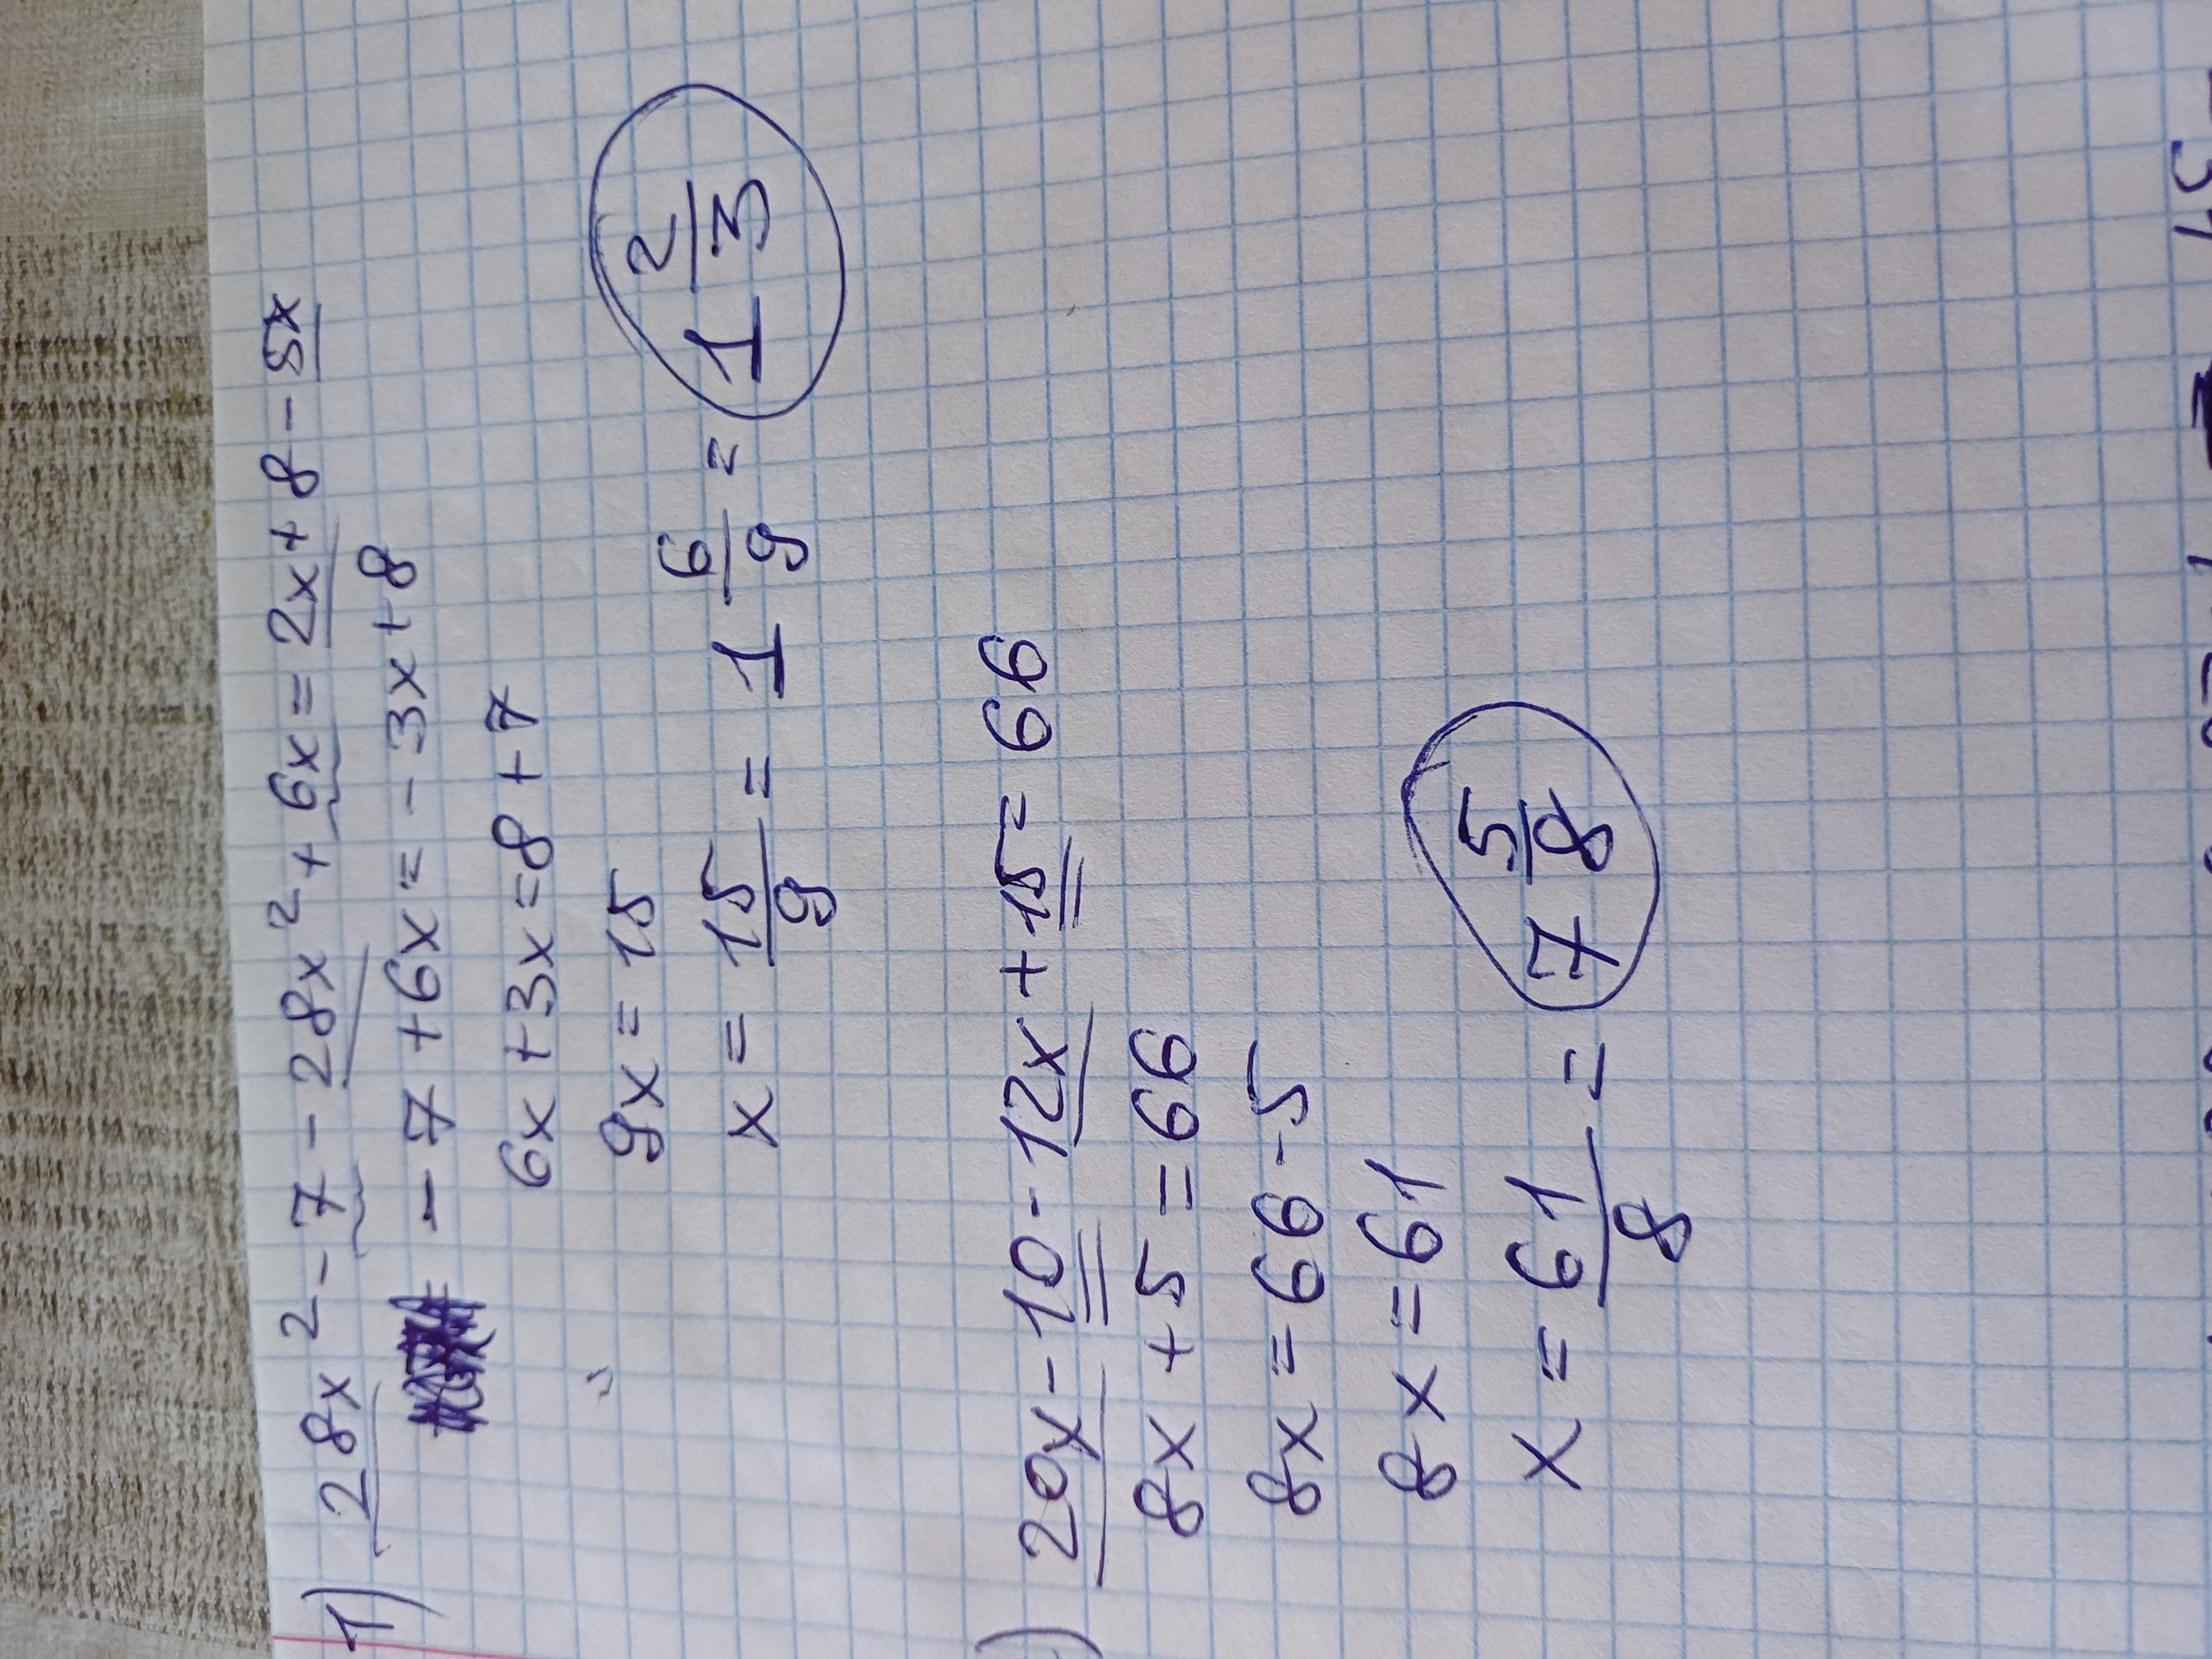 1) 28x² - 7 - 28x² + 6x = 2x + 8 - 5x
- 7 + 6x = - 3x + 8
6x + 3x = 8 + 7
9x = 15
x = 15/9 = 1 6/9 = 1 2/3
) 20x - 10 - 12x + 15 = 66
8x + 5 = 66
8x = 66 - 5
8x = 61
x = 61/8 = 7 5/8